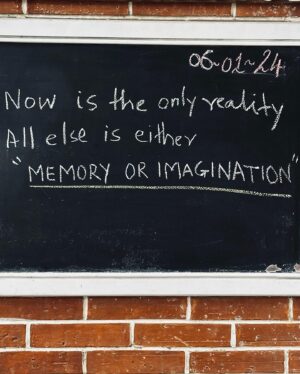 06-01-24
Now is the only reality
All else is either
"MEMORY OR IMAGINATION"